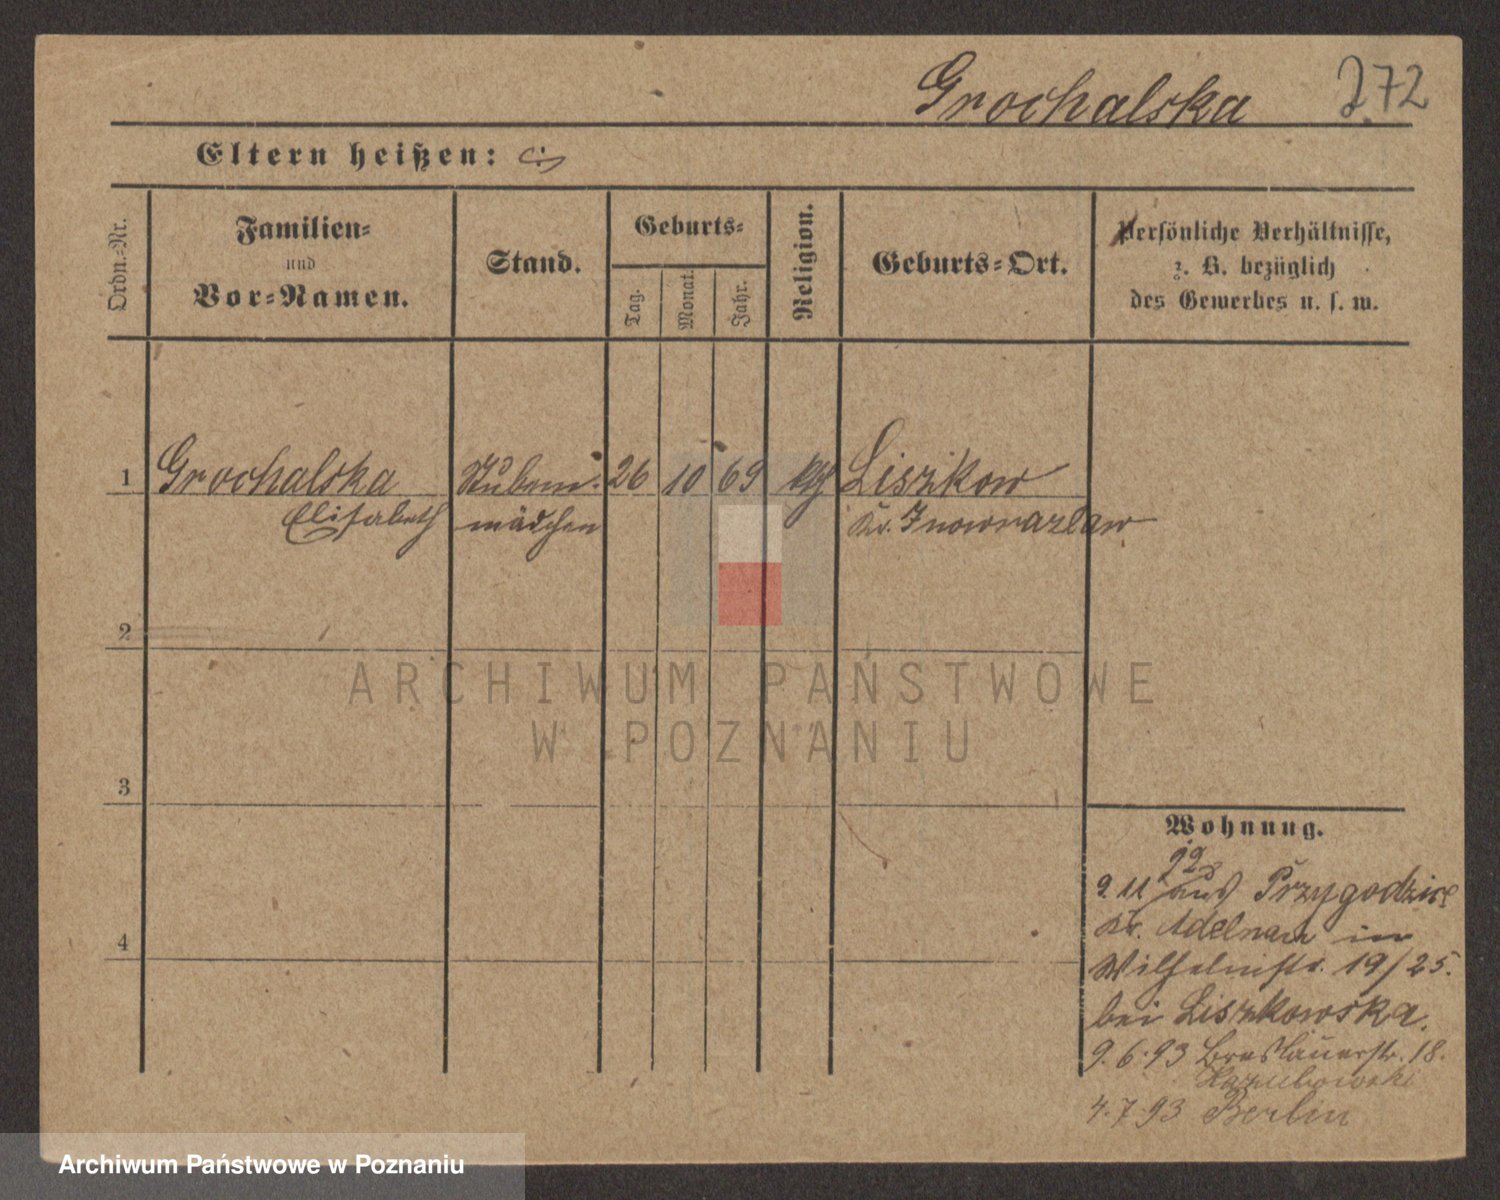 Grochalska 272
Eltern heißen:
Ordn.-Nr.
Familien-
und
Vor-Namen.
Stand.
Geburts-
Tag.
Monat.
Jahr.
Religion.
Geburts-Ort.
Persönliche Verhältnisse,
z. B. bezüglich
des Gewerbes u. s. w.
1 Grochalska Stuben- 26 10 69 kth Liszkow
Elisabeth mädchen Kr. Inowrazlaw
2
3
4
Wohnung.
92
9. 11. aus Przygodzice
Kr. Adelnau in
Wilhelmstr. 19/25.
bei Liszkowska.
9. 6. 93 Breslauerstr. 18.
Kazubowski
4. 7. 93 Berlin
ARCHIWUM PAŃSTWOWE
W POZNANIU
Archiwum Państwowe w Poznaniu